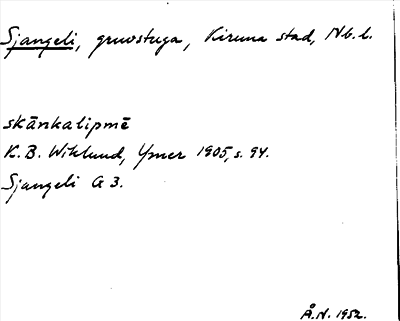 Sjangeli, gruvstuga, Kiruna stad, Nb. l.
skānkalipmē
K. B. Wiklund, Ymer 1905, s. 94.
Sjangeli G 3.
Å.N. 1952.